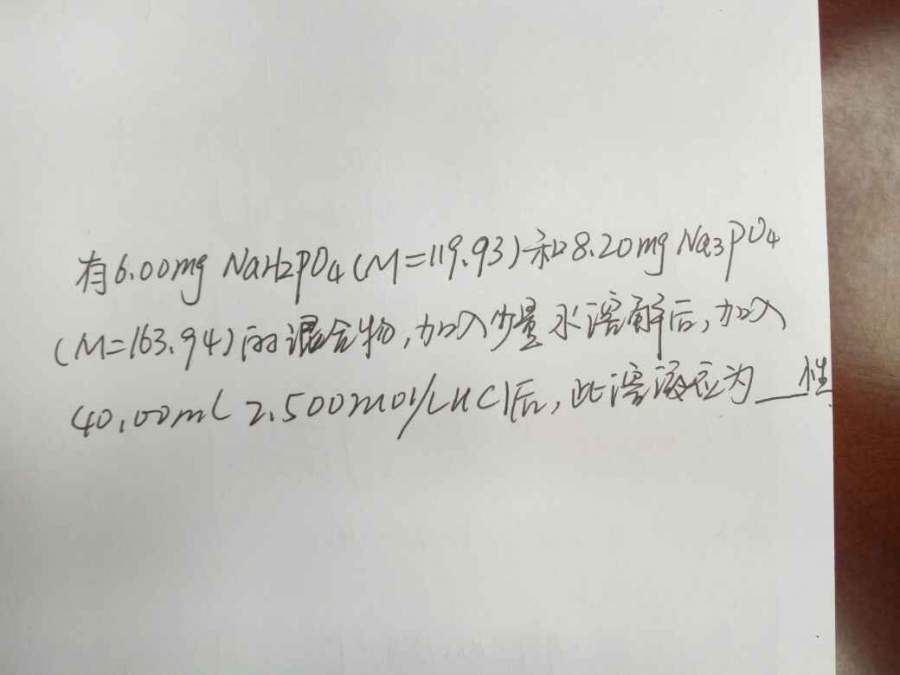 有6.00mg NaH2PO4(M=119.93)和8.20mg Na3PO4
(M=163.94)的混合物,加入少量水溶解后,加入
40.00mL 2.500mol/LHCl后,此溶液应为__性